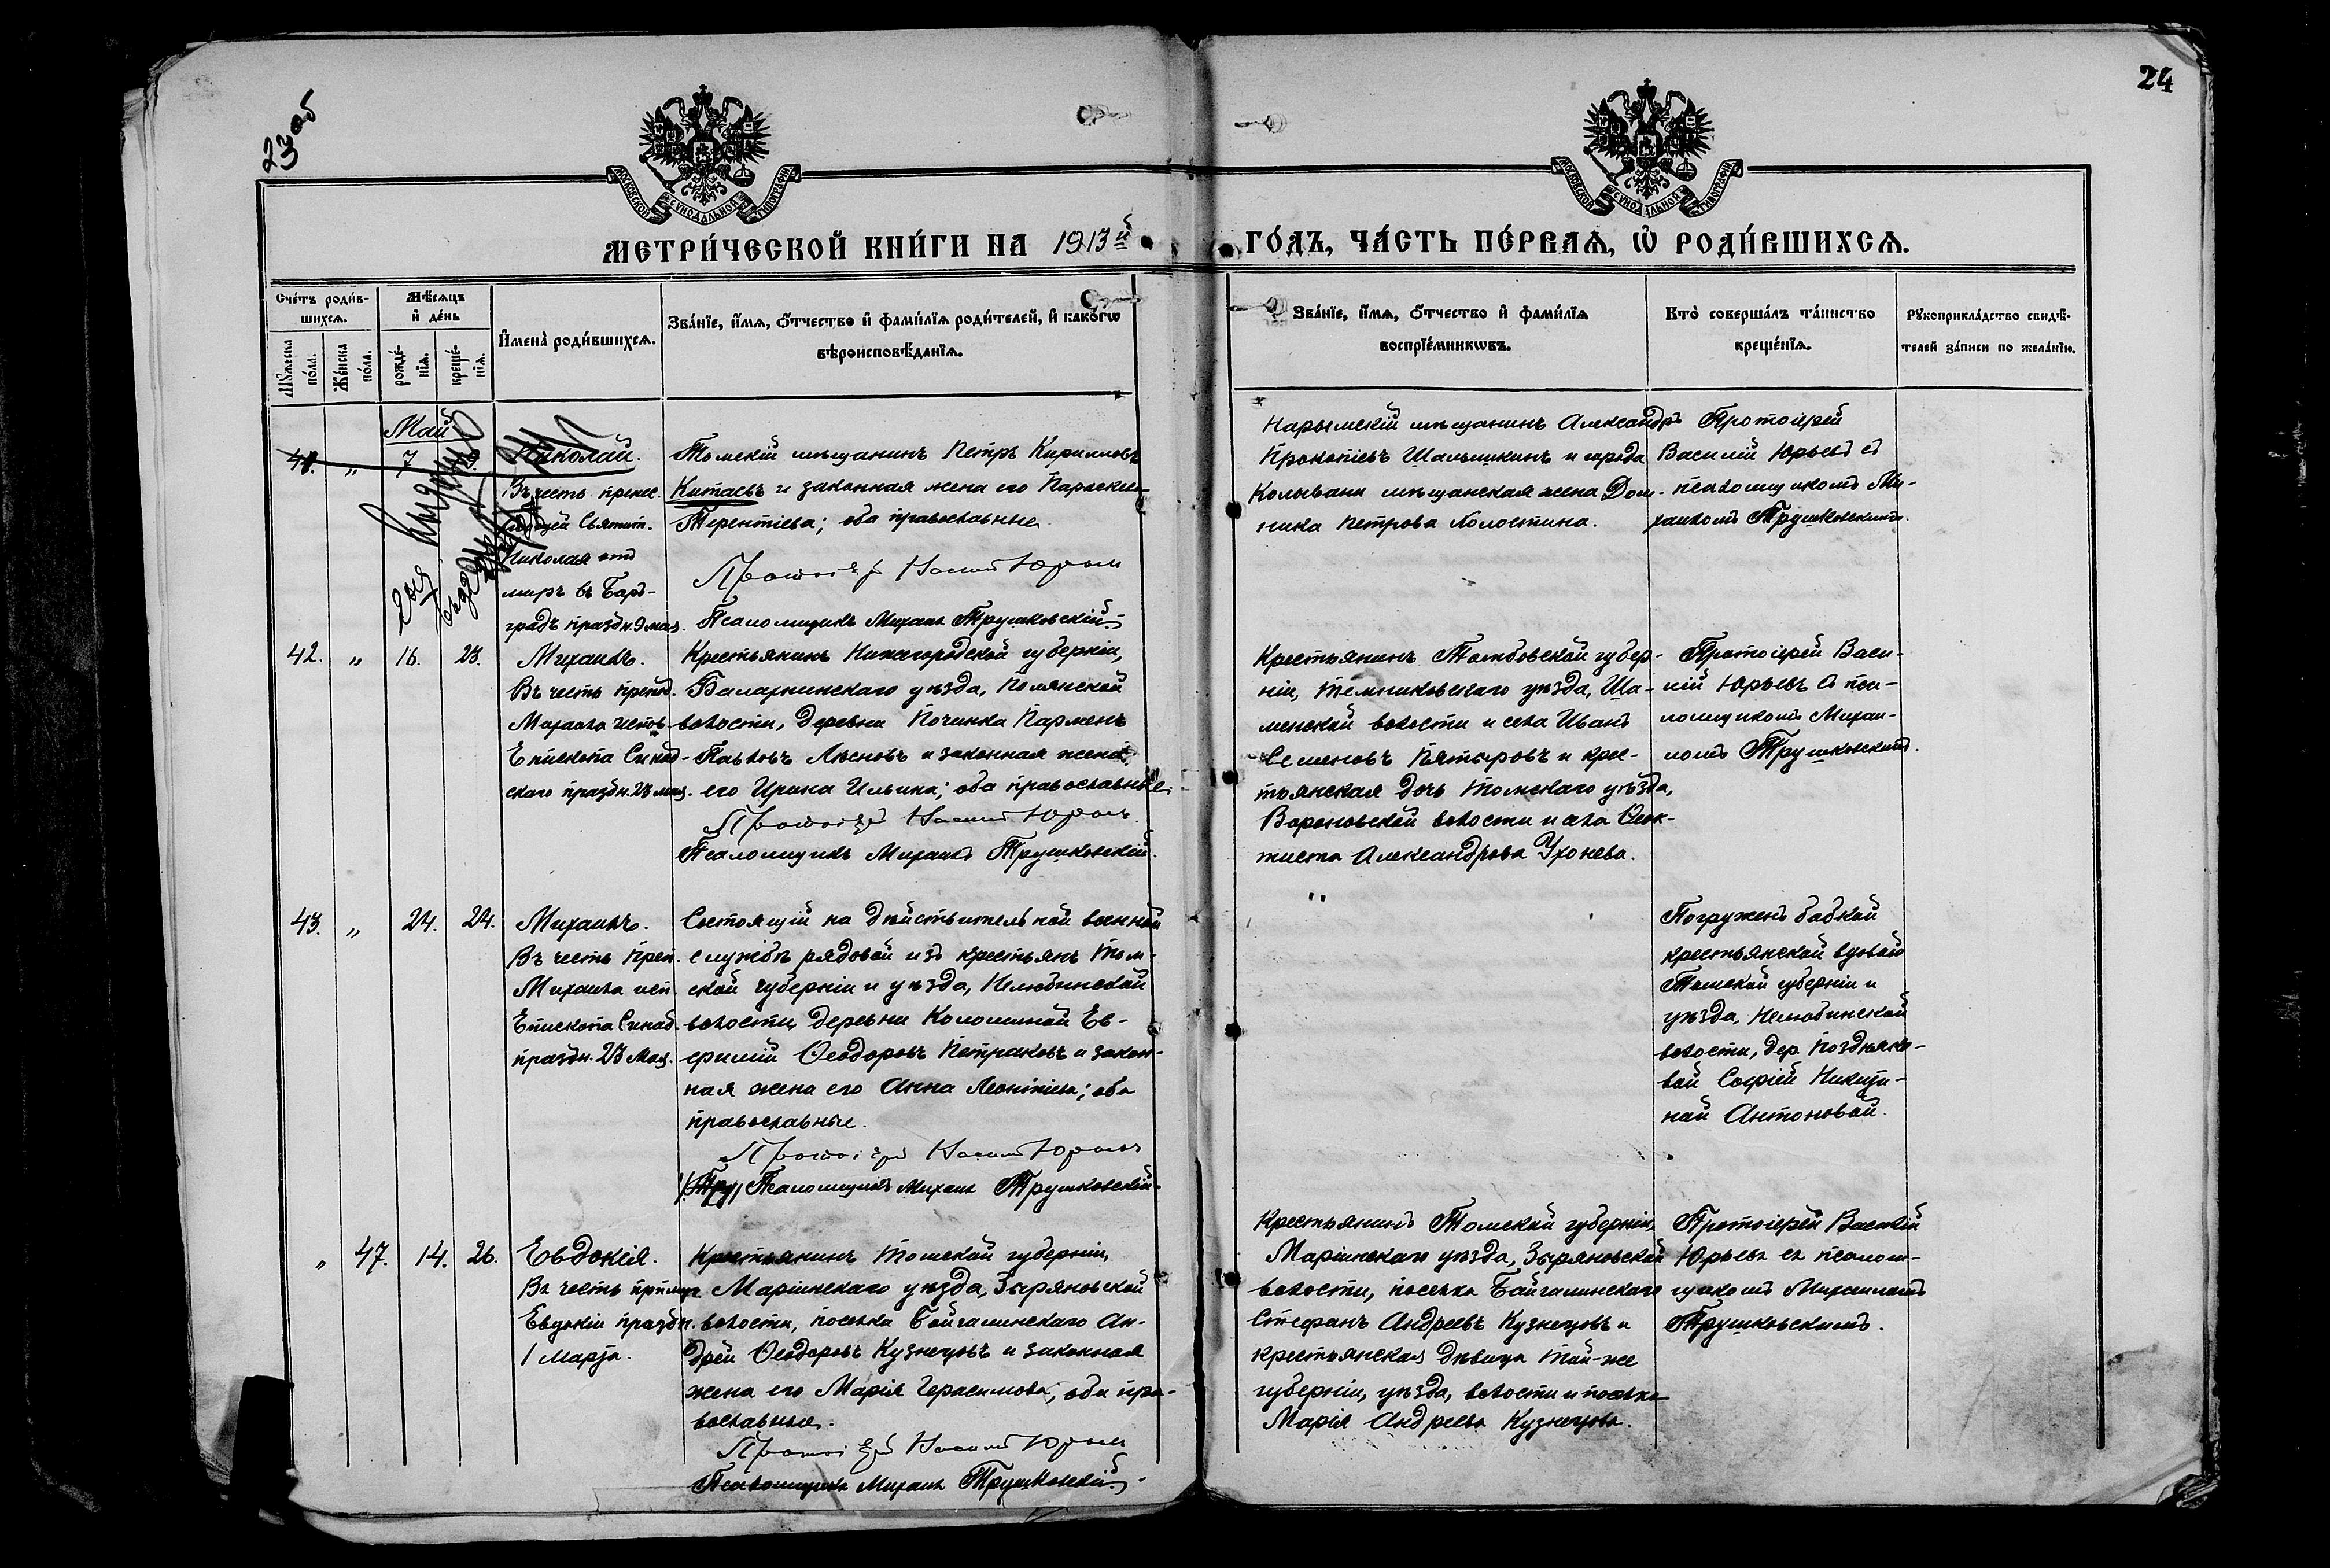 23 об
24
МОСКОВСКОЙ СѴНОДАЛЬНОЙ ТИПОГРАФІИ
МОСКОВСКОЙ СѴНОДАЛЬНОЙ ТИПОГРАФІИ
МЕТРИ́ЧЕСКОЙ КНИ́ГИ НА 1913й
ГО́ДЪ, ЧА́СТЬ ПЕ́РВАѦ, Ѡ҆ РОДИ́ВШИХСѦ.
Сче́тъ роди́в-
шихсѧ.
Мѣ́сѧцъ
и҆ де́нь
Мꙋ́жеска
по́ла.
Же́нска
по́ла.
рожде́-
нїѧ.
креще́-
нїѧ.
И҆мена̀ роди́вшихсѧ.
Зва́нїе, и҆́мѧ, ѻ҆́тчество и҆ фами́лїѧ роди́телей, и҆ како́гѡ
вѣроисповѣ́данїѧ.
Зва́нїе, и҆́мѧ, ѻ҆́тчество и҆ фами́лїѧ
воспрїе́мникѡвъ.
Кто̀ соверша́лъ та́инство
креще́нїѧ.
Рꙋкоприкла́дство свидѣ́-
телей за́писи по жела́нїю.
Май
41. „ 7
Николай.
Въ честь пренес.
мощей Святит.
Николая отъ
миръ въ Баръ-
градъ праздн. 9 мая.
Томскій мѣщанинъ Петръ Кирилловъ
Китаевъ и законная жена его Параскева
Терентіева; оба православные.
Протоіерей Василій Юрьевъ
Псаломщикъ Михаилъ Трушковскій.
Нарымскій мѣщанинъ Александръ
Прокопіевъ Шалышкинъ и города
Колывани мѣщанская жена Дом-
ника Петрова Холостина.
Протоіерей
Василій Юрьевъ съ
псаломщикомъ Ми-
хаиломъ Трушковскимъ.
42. „ 16. 23.
Михаилъ.
Въ честь препод.
Михаила испов.
Епископа Синад-
скаго праздн. 23 мая.
Крестьянинъ Нижегородской губерніи,
Балахнинскаго уѣзда, Полянской
волости, деревни Починка Парменъ
Павловъ Лѣсновъ и законная жена
его Ирина Ильина; оба православные.
Протоіерей Василій Юрьевъ.
Псаломщикъ Михаилъ Трушковскій.
Крестьянинъ Тамбовской губер-
ніи, Темниковскаго уѣзда, Ша-
менской волости и села Иванъ
Семеновъ Пятыровъ и крес-
тьянская дочь Томскаго уѣзда,
Вороновской волости и села Ѳеок-
тиста Александрова Ухонева.
Протоіерей Васи-
лій Юрьевъ съ пса-
ломщикомъ Михаи-
ломъ Трушковскимъ.
43. „ 24. 24.
Михаилъ.
Въ честь Преп.
Михаила исп.
Епископа Синад.
праздн. 23 Мая.
Состоящій на дѣйствительной военной
службѣ рядовой изъ крестьянъ Том-
ской губерніи и уѣзда, Нелюбинской
волости, деревни Коломиной Ев-
фимій Ѳеодоровъ Петраковъ и закон-
ная жена его Анна Леонтіева; оба
православные.
Протоіерей Василій Юрьевъ
Псаломщикъ Михаилъ Трушковскій.
„
Погруженъ бабкой
крестьянской вдовой
Томской губерніи и
уѣзда, Нелюбинской
волости, дер. Поздняко-
вой Софіей Никити-
ной Антоновой.
„ 47. 14. 26.
Евдокія.
Въ честь прпмуч.
Евдокіи праздн.
1 Марта.
Крестьянинъ Томской губерніи,
Маріинскаго уѣзда, Зыряновской
волости, поселка Байгалинскаго Ан-
дрей Ѳеодоровъ Кузнецовъ и законная
жена его Марія Герасимова, оба пра-
вославные.
Протоіерей Василій Юрьевъ
Псаломщикъ Михаилъ Трушковскій.
Крестьянинъ Томской губерніи,
Маріинскаго уѣзда, Зыряновской
волости, поселка Байгалинскаго
Стефанъ Андреевъ Кузнецовъ и
крестьянская дѣвица той-же
губерніи, уѣзда, волости и поселка
Марія Андреева Кузнецова.
Протоіерей Василій
Юрьевъ съ псалом-
щикомъ Михаиломъ
Трушковскимъ.